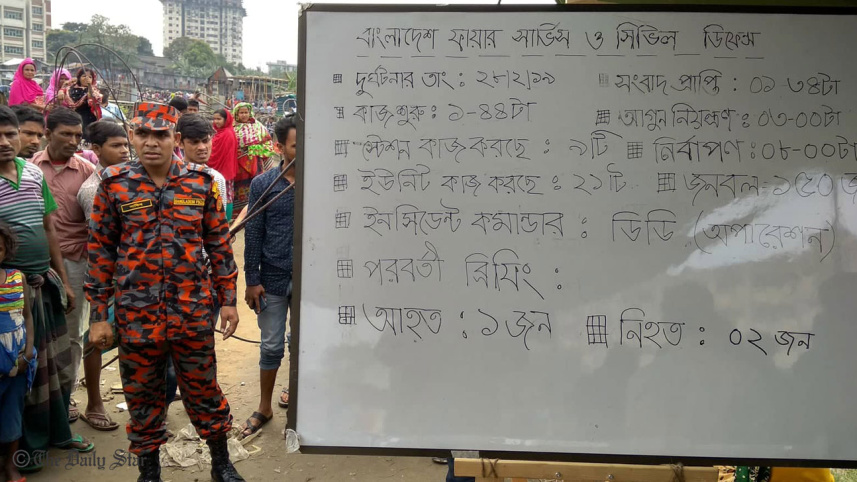 বাংলাদেশ ফায়ার সার্ভিস ও সিভিল ডিফেন্স
দুর্ঘটনার তাং : ২৮/২/১৯
সংবাদ প্রাপ্তি : ০১-৩৪টা
কাজ শুরু : ১-৪৪টা
আগুন নিয়ন্ত্রণ : ০৩-০০টা
স্টেশন কাজ করছে : ৯টি
নির্বাপণ : ০৮-০০টা
ইউনিট কাজ করছে : ২১টি
জনবল- ১৫০ জ
ইনসিডেন্ট কমান্ডার : ডিডি (অপারেশন)
পরবর্তী ব্রিফিং :
আহত : ১ জন
নিহত : ০২ জন
© The Daily Star